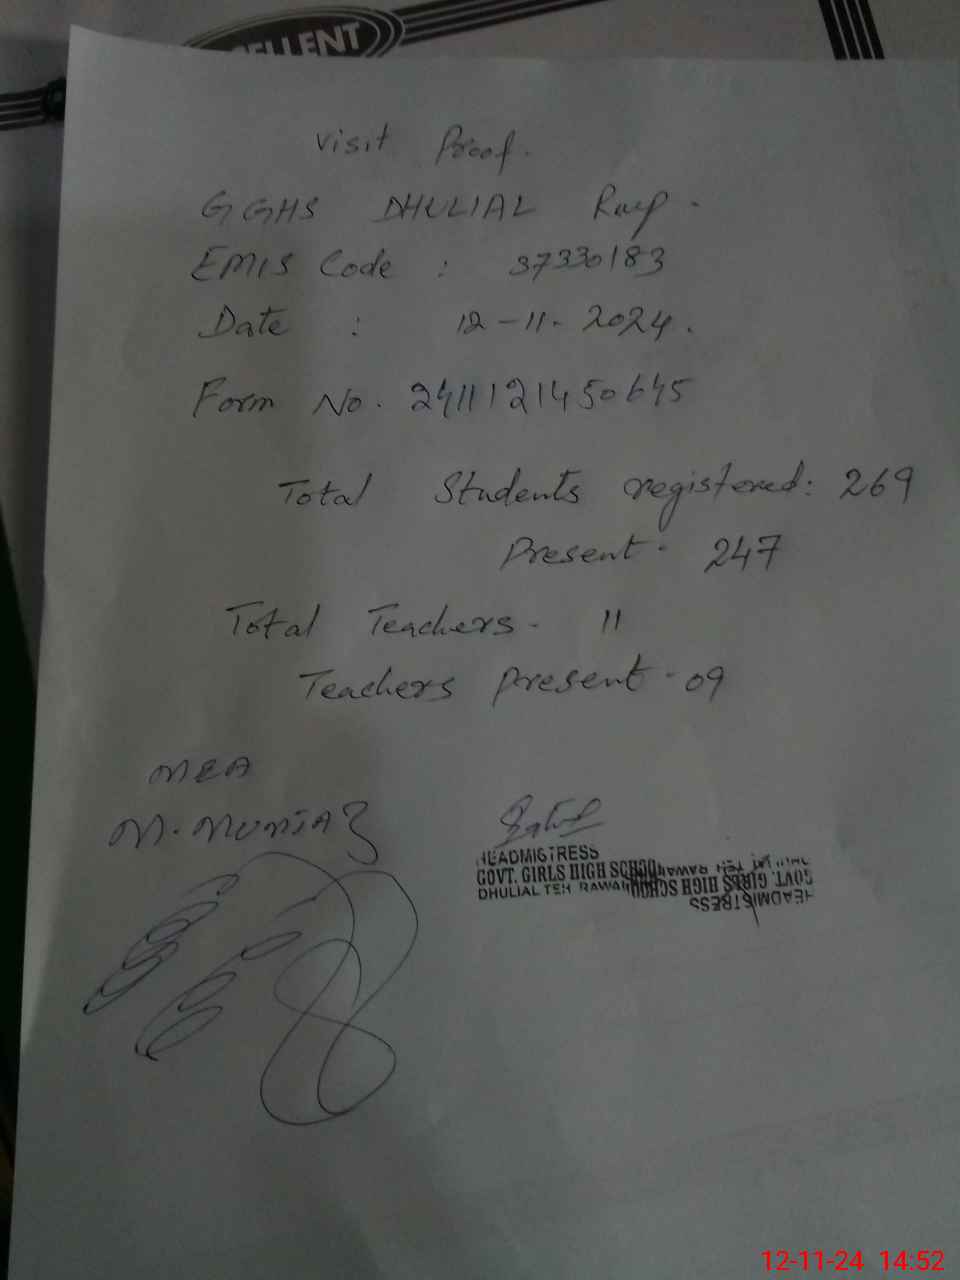 ELLENT
Visit Proof.
GGHS DHULIAL Rwp.
EMIS Code : 37330183
Date : 12-11-2024.
Form No. 241112145 0645
Total Students registered: 269
Present - 247
Total Teachers - 11
Teachers present - 09
MEA
M. MUMTAZ
HEADMISTRESS
GOVT. GIRLS HIGH SCHOOL
DHULIAL TEH RAWAL
HEADMISTRESS
GOVT. GIRLS HIGH SCHOOL
TEH RAWAL
12-11-24 14:52